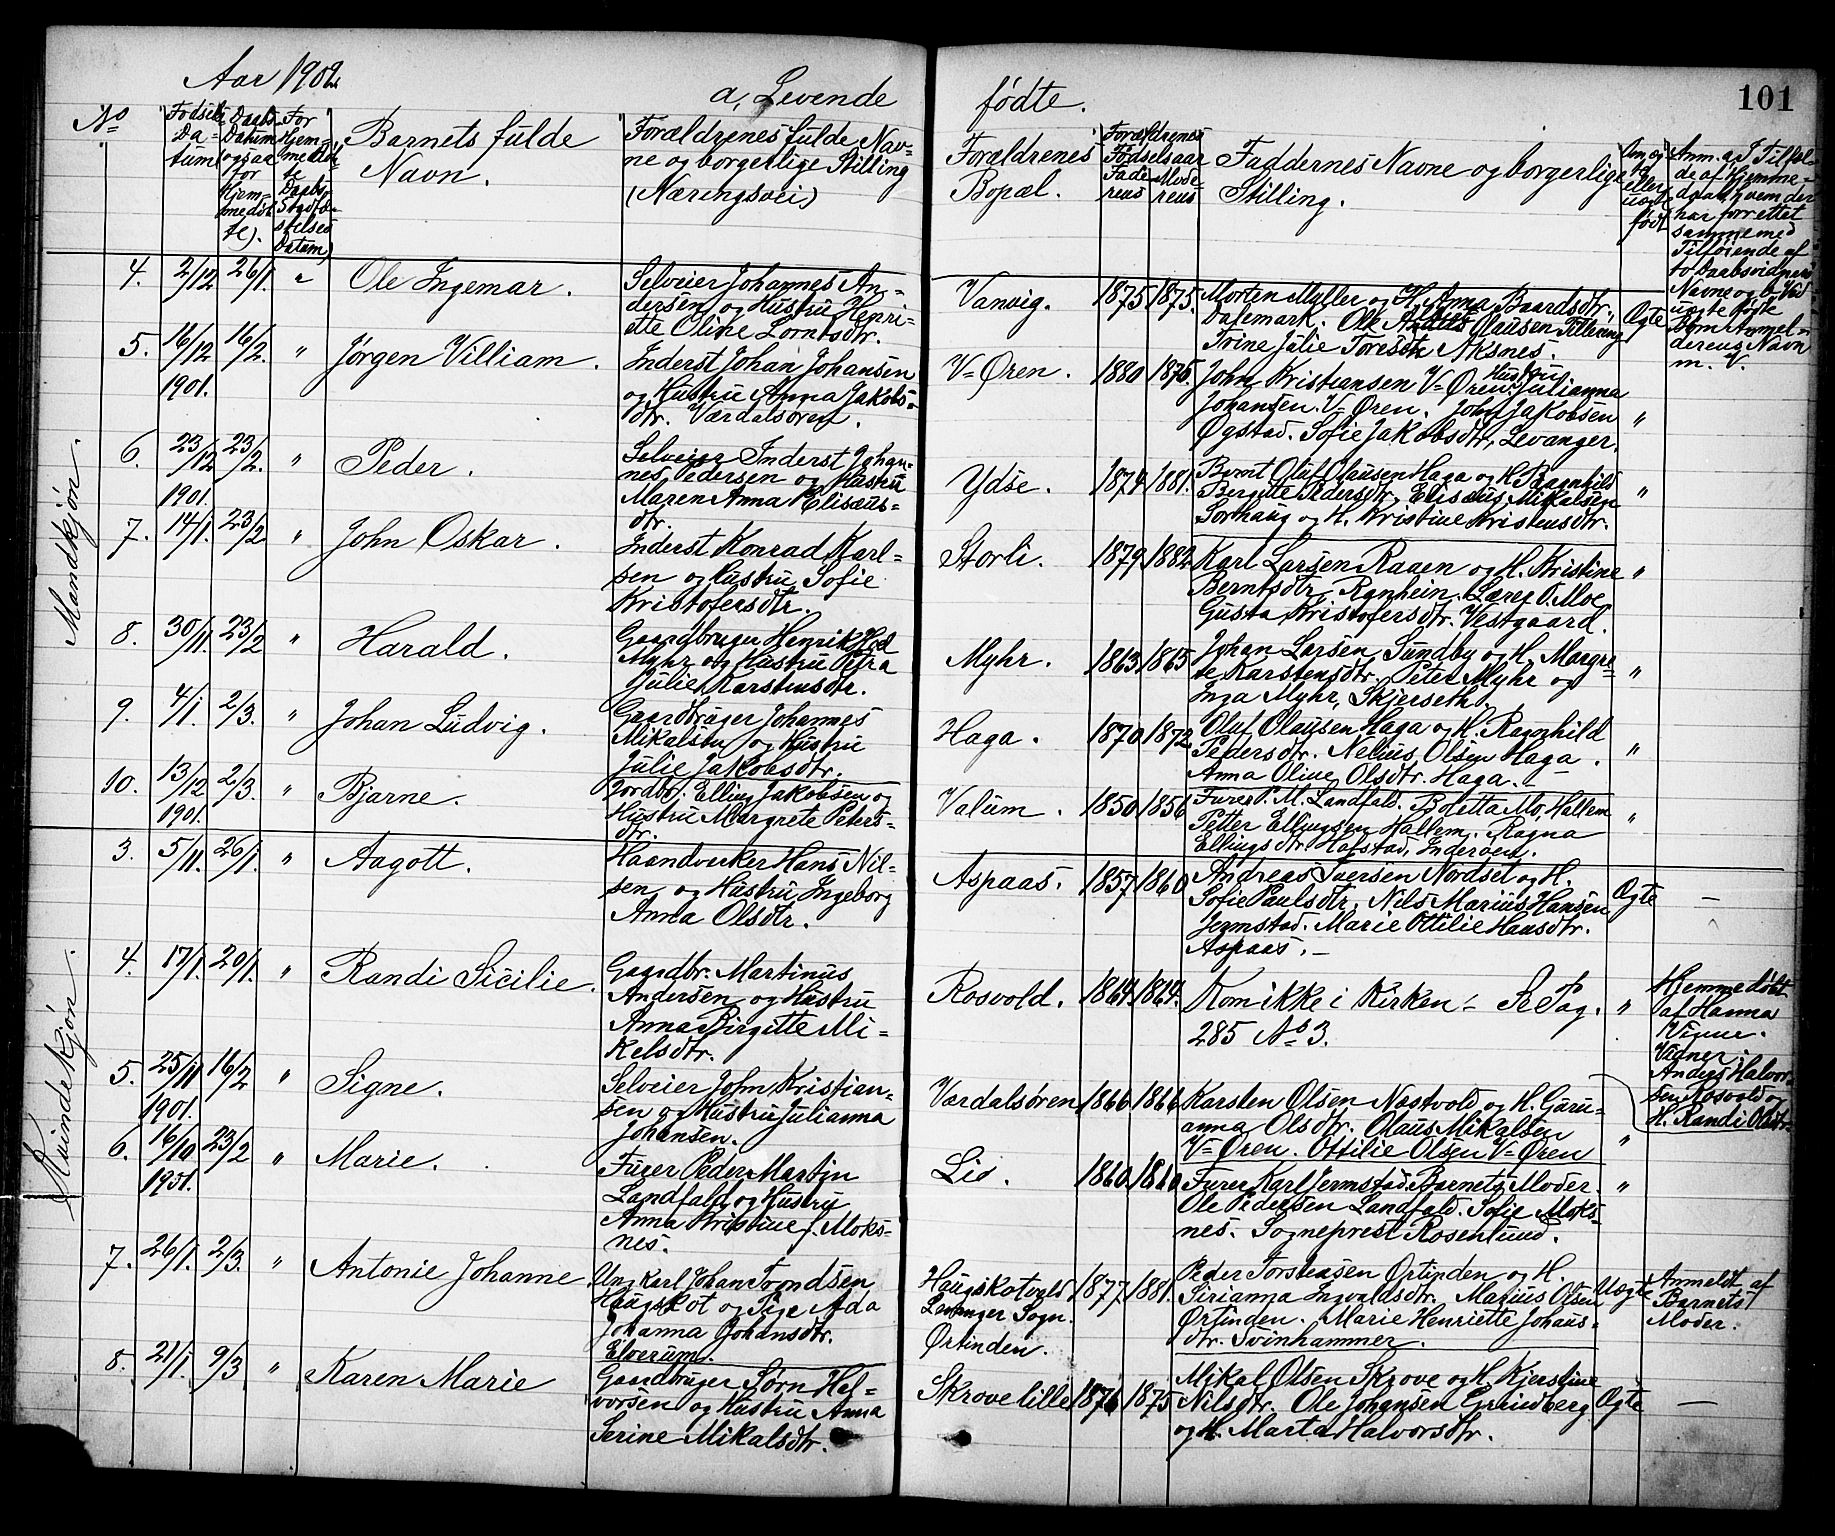 Aar 1902
a, Levende
fødte.
101
No
Fødsels
Da-
tum
Daabs
Datum
ogsaa
for
Hjem-
medøb
te).
For
Hjem-
medøb-
te
Daabs
Stadfæ-
stelses
Datum)
Barnets fulde
Navn.
Forældrenes fulde Nav-
ne og borgerlige Stilling
(Næringsvei)
Forældrenes
Bopæl.
Forældrenes
Fødselsaar
Fade-
rens
Mode-
rens
Faddernes Navne og borgerlige
Stilling.
Om æg
te
eller
uægt
født
Anm. a, I Tilfæl-
de af Hjemme-
daab, hvem der
har forrettet
samme med
Tilføiende af
to Daabsvidners
Navne og b, Ved
uægte fødte
Børn Anmel-
derens Navn
m. V.
Mandkjøn.
4. 2/12 26/1. " Ole Ingemar.
Selveier Johannes An-
dersen og Hustru Henri-
ette Oline Lorntsdtr.
Vanvig. 1875 1875.
Morten Myller og H. Anna Baardsdtr.
Dalemark. Ole Olausen Tillering
Trine Julie Toresdtr Aksnes.
Ægte
5. 16/12 1901. 16/2. " Jørgen Villiam.
Inderst Johan Johansen
og Hustru Anna Jakobs-
dtr. Værdalsøren.
V=Øren. 1880 1875.
John Kristiansen V=Øren. Hustru Julianna
Johansen. V=Øren. John Jakobsen
Øgstad. Sofie Jakobsdtr, Levanger.
"
6. 23/12 1901. 23/2. " Peder.
Selveier Inderst Johan-
nes Pedersen og Hustru
Maren Anna Elisæus-
dtr.
Ydse. 1874 1881.
Bernt Oluf Olausen Haga og H. Ragnhild
Bergitte Pedersdtr, Elisæus Mikalsen
Sorthaug og H. Kristine Kristensdtr.
"
7. 14/1. 23/2 " John Oskar.
Inderst Konrad Karl-
sen og Hustru Sofie
Kristofersdtr.
Storli. 1879 1882
Karl Larsen Raaen og H. Kristine
Berntsdtr, Reinhein. Lærer O. Moe
Gusta Kristofersdtr. Vestgaard.
"
8. 30/11. 23/2 " Harald.
Gaardbruger Henrik Hod
Myhr og Hustru Petra
Julie Karstensdtr.
Myhr. 1863 1865
Johan Larsen Sundby og H. Margre-
te Karstensdtr. Peter Myhr og
Inga Myhr, Skjerseth.
"
9. 4/1. 2/3. " Johan Ludvig.
Gaardbruger Johannes
Mikalsen og Hustru
Julie Jakobsdtr.
Haga. 1870 1872
Oluf Olausen Haga og H. Ragnhild
Pedersdtr. Nelius Olsen Haga.
Anna Oline Olsdtr. Haga.
"
10. 13/12 1901. 2/3. " Bjarne.
Jordbr. Elling Jakobsen og
Hustru Margrete Peters-
dtr.
Valum. 1850 1856
Furer P. M. Landfald. Boletta Mo, Hallem
Petter Ellingsen Hallem. Ragna
Ellingsdtr. Hofstad, Inderøen.
"
Kvindekjøn.
3. 5/11. 26/1. " Aagott.
Haandverker Hans Nil-
sen og Hustru Ingeborg
Anna Olsdtr.
Aspaas. 1857 1860
Andreas Iversen Nordset og H.
Sofie Paulsdtr, Nils Marius Hansen
Jermstad. Marie Ottilie Hansdtr.
Aspaas. –
Ægte –
4. 17/1. 20/1. " Randi Sicilie.
Gaardbr. Martinus
Andersen og Hustru
Anna Birgitte Mi-
kelsdtr.
Rosvold. 1864 1864.
Kom ikke i Kirken! – Se Pag.
285 No 3.
"
Hjemmedøbt
af Hanna
Vinne.
Vidner:
Anders Halvor-
sen Rosvold og
H. Randi Olsdtr.
5. 25/11 1901. 16/2 " Signe.
Selveier John Kristian-
sen og Hustru Julianna
Johansen.
Værdalsøren 1866 1866
Karsten Olsen Næstvold og H. Guru-
anna Olsdtr. Olaus Mikalsen
V=Øren. Ottilie Olsen V=Øren
"
6. 16/10 1901. 23/2 " Marie.
Furer Peder Martin
Landfald og Hustru
Anna Kristine f. Moks-
nes.
Lid. 1860 1860
Furer Karl Jermstad. Barnets Moder.
Ole Pedersen Landfald. Sofie Moks-
nes. Sogneprest Rosenlund.
"
7. 26/1. 2/3. " Antonie Johanne
Ungkarl Johan Trondsen
Haugskot og Pige Ada
Johanna Johansdtr.
Elverum.
Haugskotvald
Levanger Sogn.
Ørtinden.
1877. 1881.
Peder Torstensen Ørtinden og H.
Sirianna Ingvaldsdtr. Marius Olsen
Ørtinden. Marie Henriette Johans-
dtr. Svinhammer.
Uægte
Anmeldt af
Barnets
Moder.
8. 21/1. 9/3 " Karen Marie
Gaardbruger Sørn Hal-
vorsen og Hustru Anna
Serine Mikalsdtr.
Skrove lille 1876 1875
Mikal Olsen Skrove og H. Kjerstine
Nilsdtr. Ole Johansen Grundberg
og H. Marta Halvorsdtr.
Ægte –